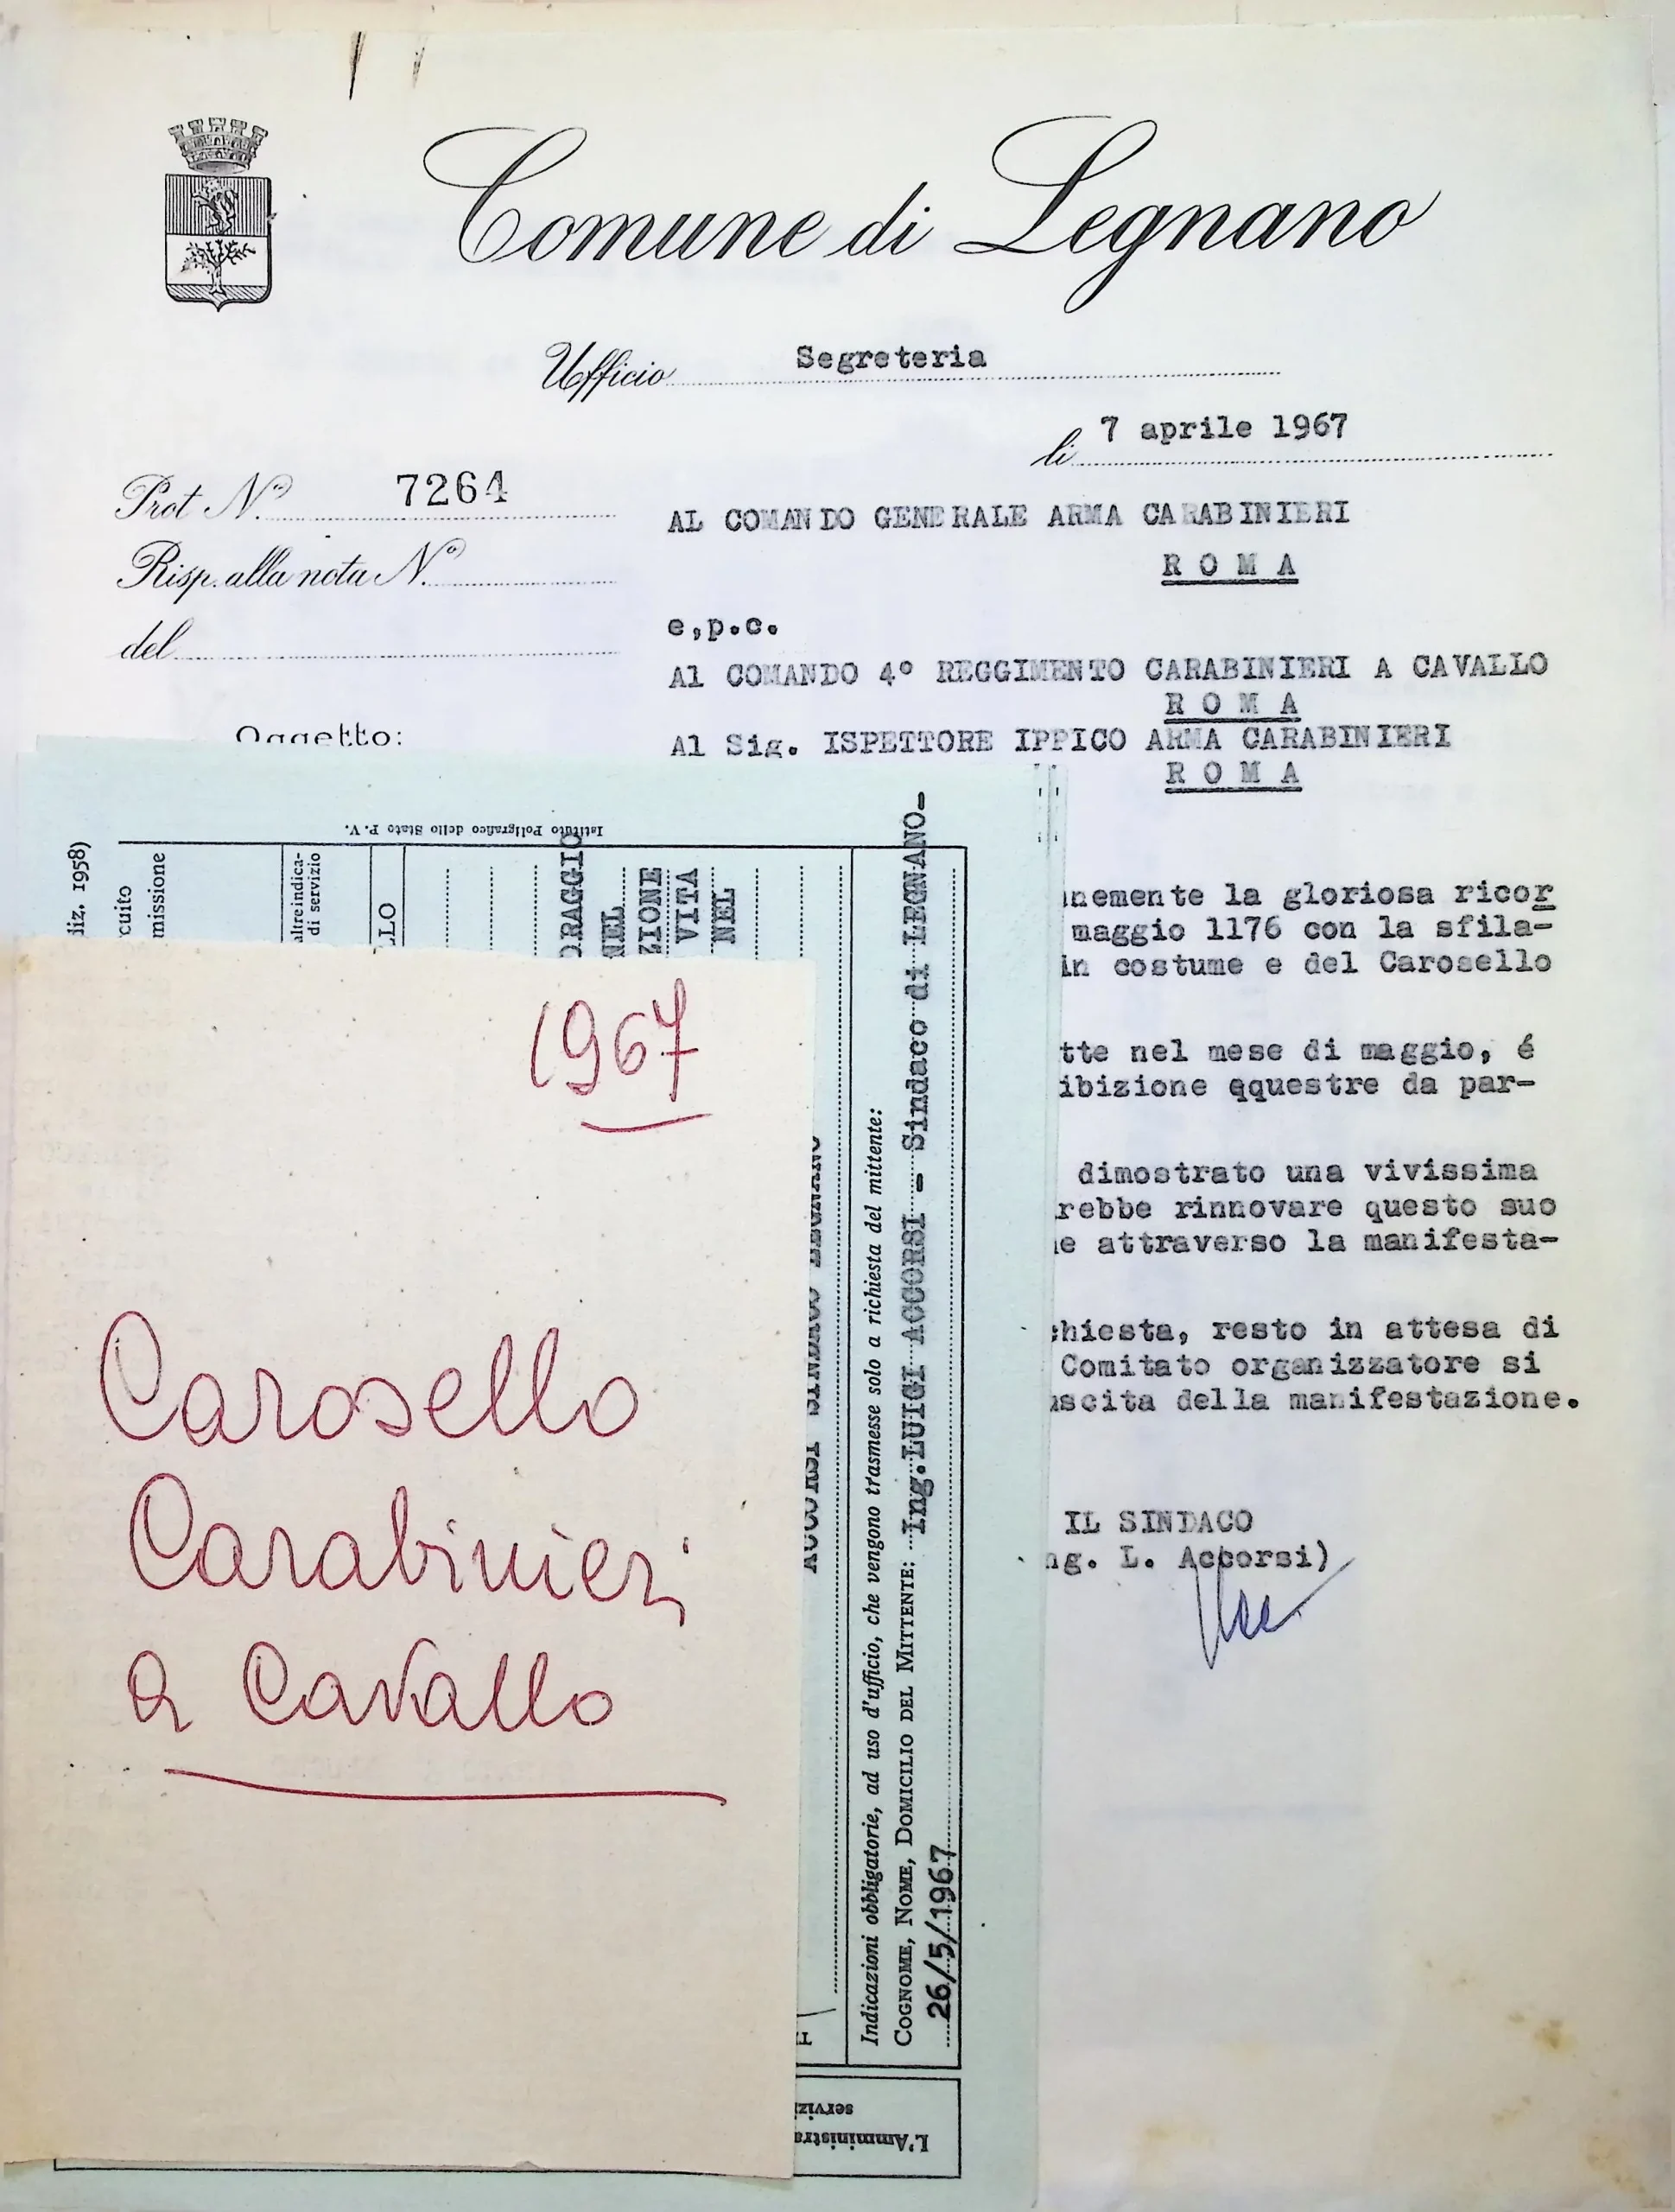 Comune di Legnano
Ufficio Segreteria
li 7 aprile 1967
Prot N.° 7264
Risp. alla nota N.°
del
AL COMANDO GENERALE ARMA CARABINIERI
R O M A
e,p.c.
Al COMANDO 4° REGGIMENTO CARABINIERI A CAVALLO
R O M A
Oggetto:
Al Sig. ISPETTORE IPPICO ARMA CARABINIERI
R O M A
nemente la gloriosa ricor
maggio 1176 con la sfila-
in costume e del Carosello
tte nel mese di maggio, é
ibizione qquestre da par-
dimostrato una vivissima
rebbe rinnovare questo suo
e attraverso la manifesta-
chiesta, resto in attesa di
Comitato organizzatore si
uscita della manifestazione.
IL SINDACO
ng. L. Accorsi)
Istituto Poligrafico dello Stato P. V.
diz. 1958)
rcuito
missione
altre indica-
di servizio
LLO
ORAGGIO
NEL
ZIONE
VITA
NEL
ACCORSI SINDACO LEGNANO
Indicazioni obbligatorie, ad uso d'ufficio, che vengono trasmesse solo a richiesta del mittente:
COGNOME, NOME, DOMICILIO DEL MITTENTE: Ing.LUIGI ACCORSI - Sindaco di LEGNANO-
26/5/1967
servizi
L'Amministra
1967
Carosello
Carabinieri
a Cavallo